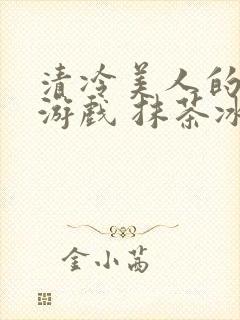 清冷美人的
游戏 抹茶冰
金小茜